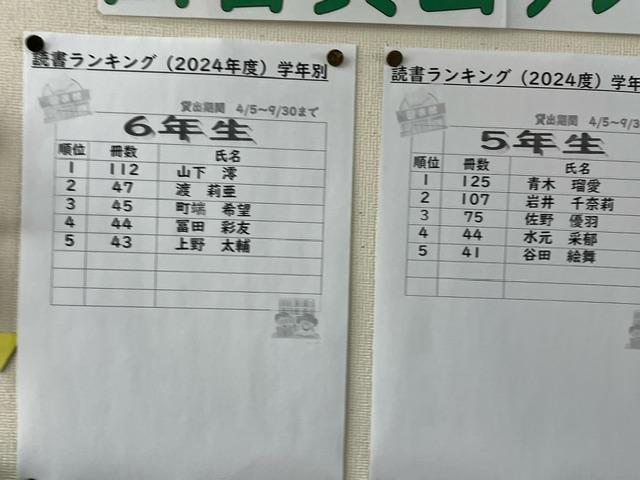 読書ランキング（2024年度）学年別
貸出期間 4/5～9/30まで
6年生
順位 冊数 氏名
1 112 山下 澪
2 47 渡 莉亜
3 45 町端 希望
4 44 冨田 彩友
5 43 上野 太輔
読書ランキング（2024度）学年
貸出期間 4/5～9/3
5年生
順位 冊数 氏名
1 125 青木 瑠愛
2 107 岩井 千奈莉
3 75 佐野 優羽
4 44 水元 采郁
5 41 谷田 絵舞